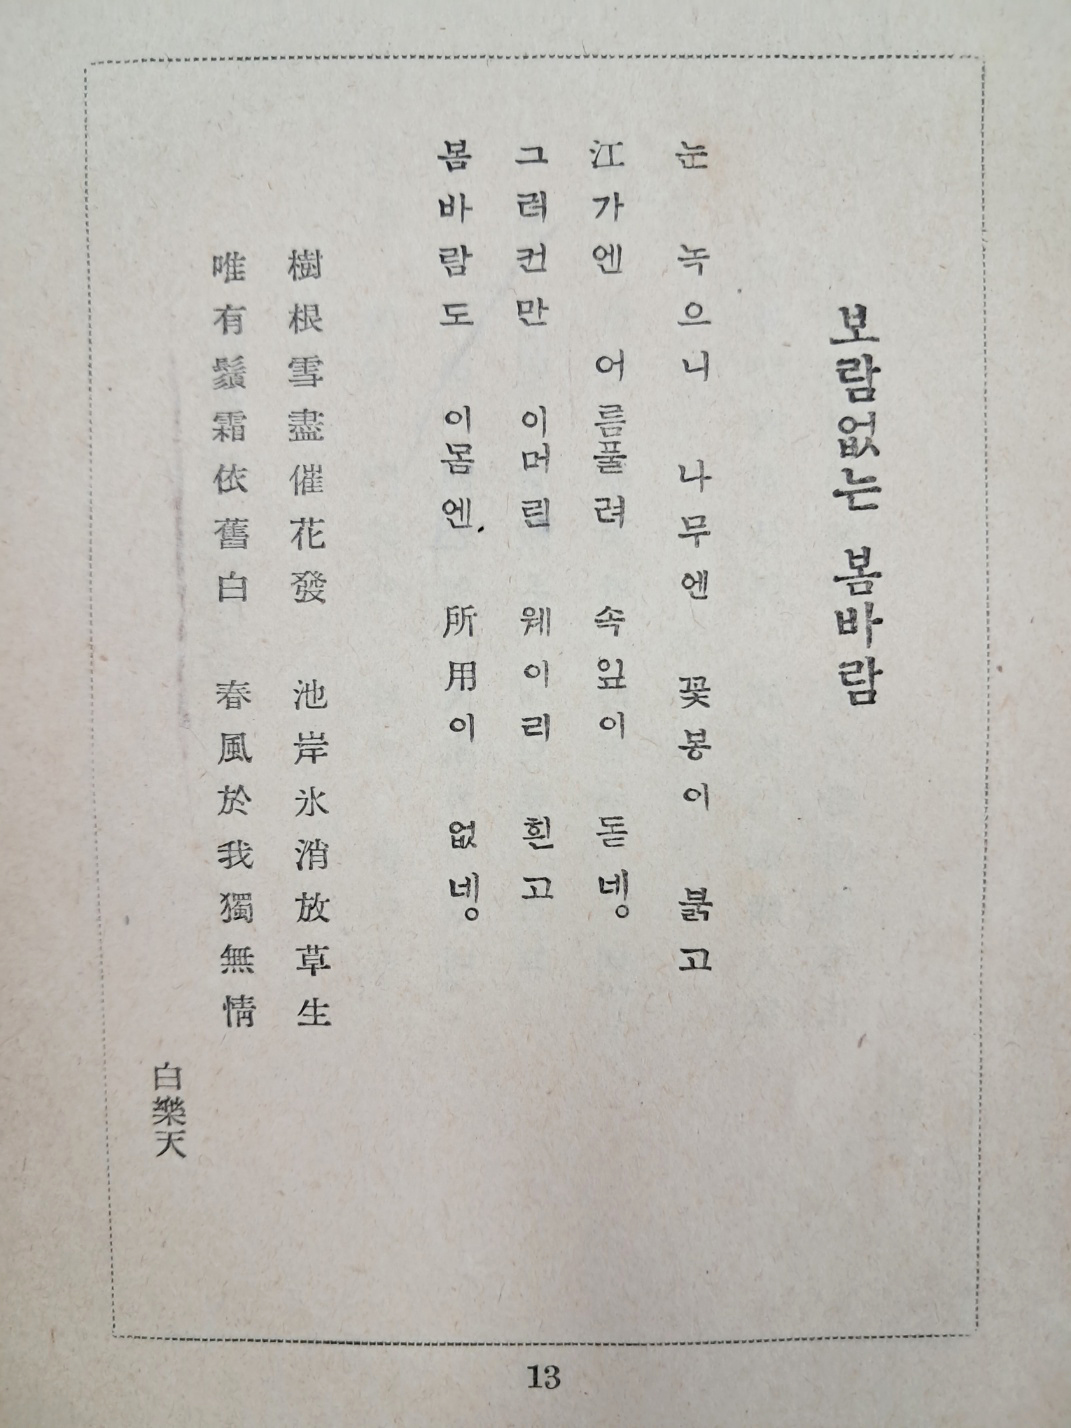 보람없는 봄바람
눈 녹으니 나무엔 꽃봉이 붉고
江가엔 어름풀려 속잎이 돋네。
그러컨만 이머린 웨이리 흰고
봄바람도 이몸엔 所用이 없네。
樹根雪盡催花發 池岸氷消放草生
唯有鬚霜依舊白 春風於我獨無情
白樂天
13